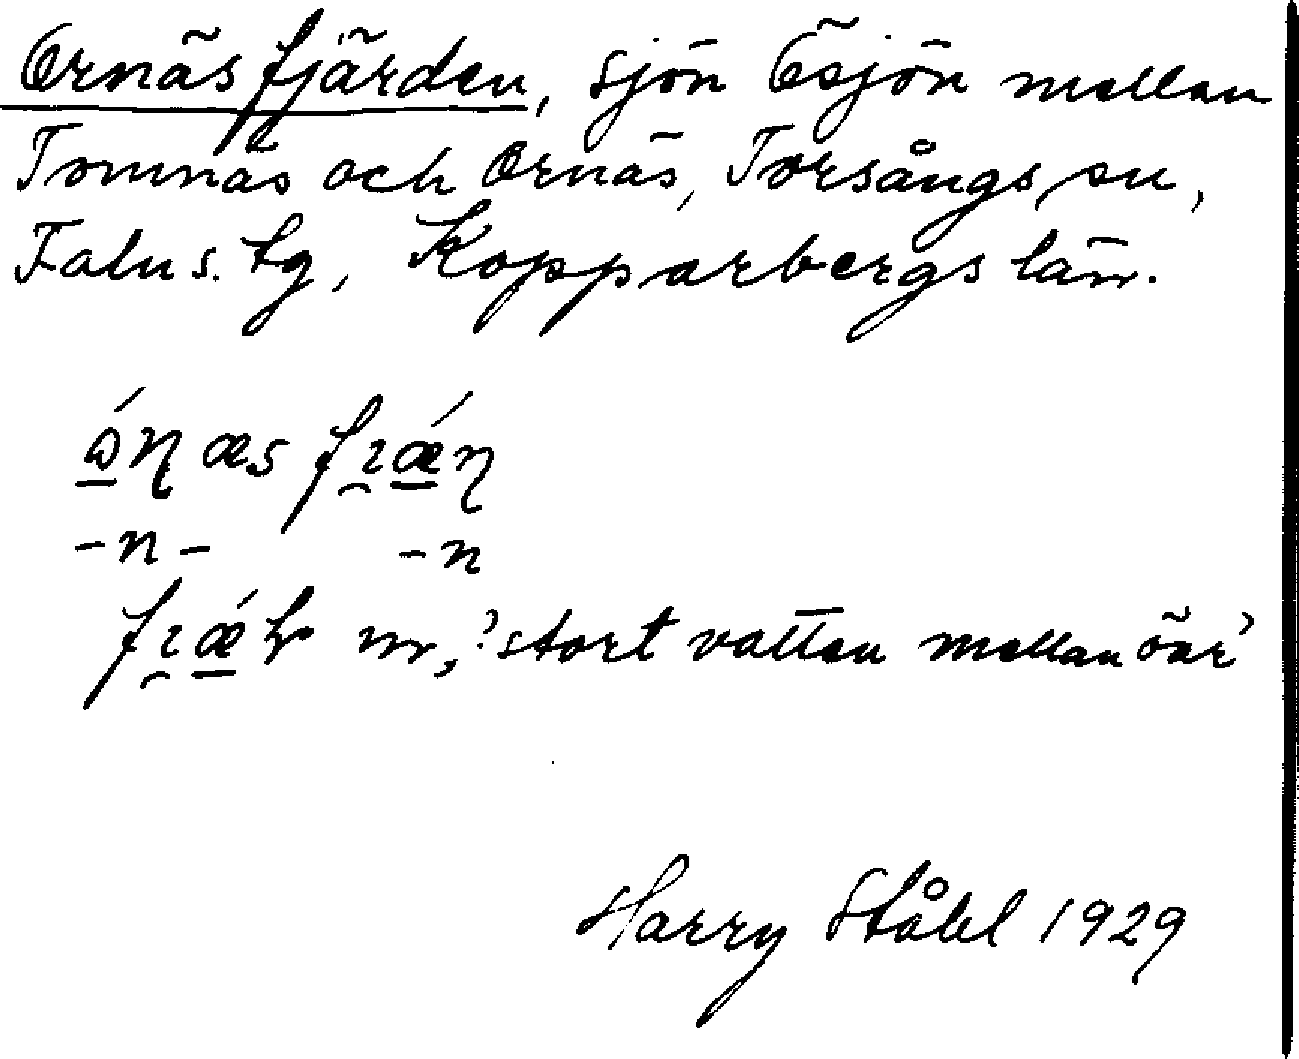 Ornäsfjärden, sjön Ösjön mellan
Tomnäs och Ornäs, Torsångs sn,
Falu s. tg, Kopparbergs län.
ɷ́ɳæsfɪ̯ǽɳ
-n- -n
fɪ̯ǽɽ m, 'stort vatten mellan öar'
Harry Ståhl 1929